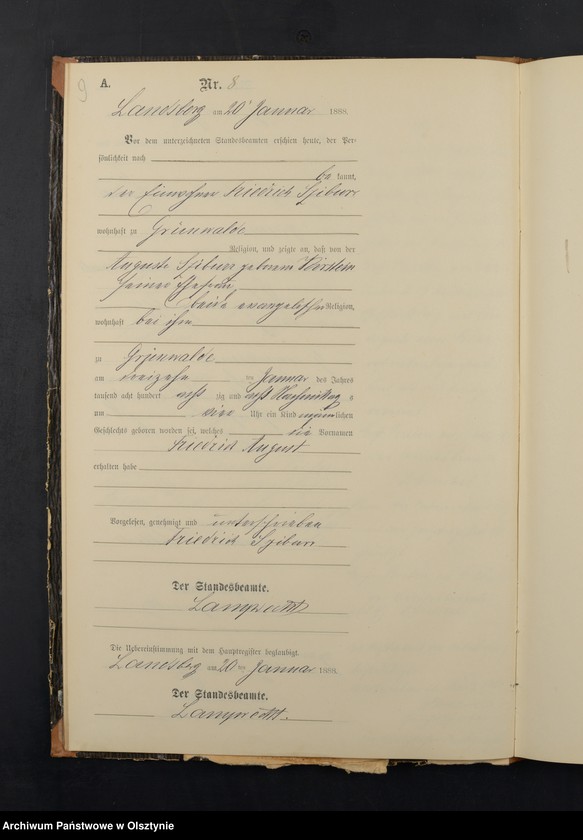 9
A.
Nr. 8
Landsberg am 20ten Januar 1888.
Vor dem unterzeichneten Standesbeamten erschien heute, der Per-
sönlichkeit nach
be kannt,
der Friedrich
wohnhaft zu Grünwalde
Religion, und zeigte an, daß von der
Auguste geborenen
seiner Ehefrau,
beide evangelischer Religion,
wohnhaft bei ihm
zu Grünwalde
am dreizehn ten Januar des Jahres
tausend acht hundert acht zig und acht Nachmittags
um vier Uhr ein Kind männlichen
Geschlechts geboren worden sei, welches die Vornamen
Friedrich August
erhalten habe
Vorgelesen, genehmigt und unterschrieben
Friedrich
Der Standesbeamte.
Lamprecht
Die Uebereinstimmung mit dem Hauptregister beglaubigt.
Landsberg am 20 ten Januar 1888.
Der Standesbeamte.
Lamprecht.
Archiwum Państwowe w Olsztynie